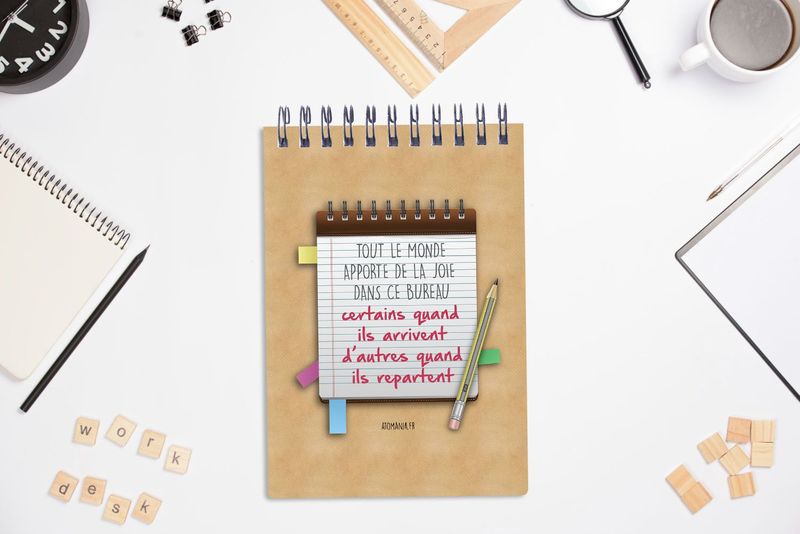 TOUT LE MONDE
APPORTE DE LA JOIE
DANS CE BUREAU
certains quand
ils arrivent
d'autres quand
ils repartent
ATOMANIA.FR
work
desk